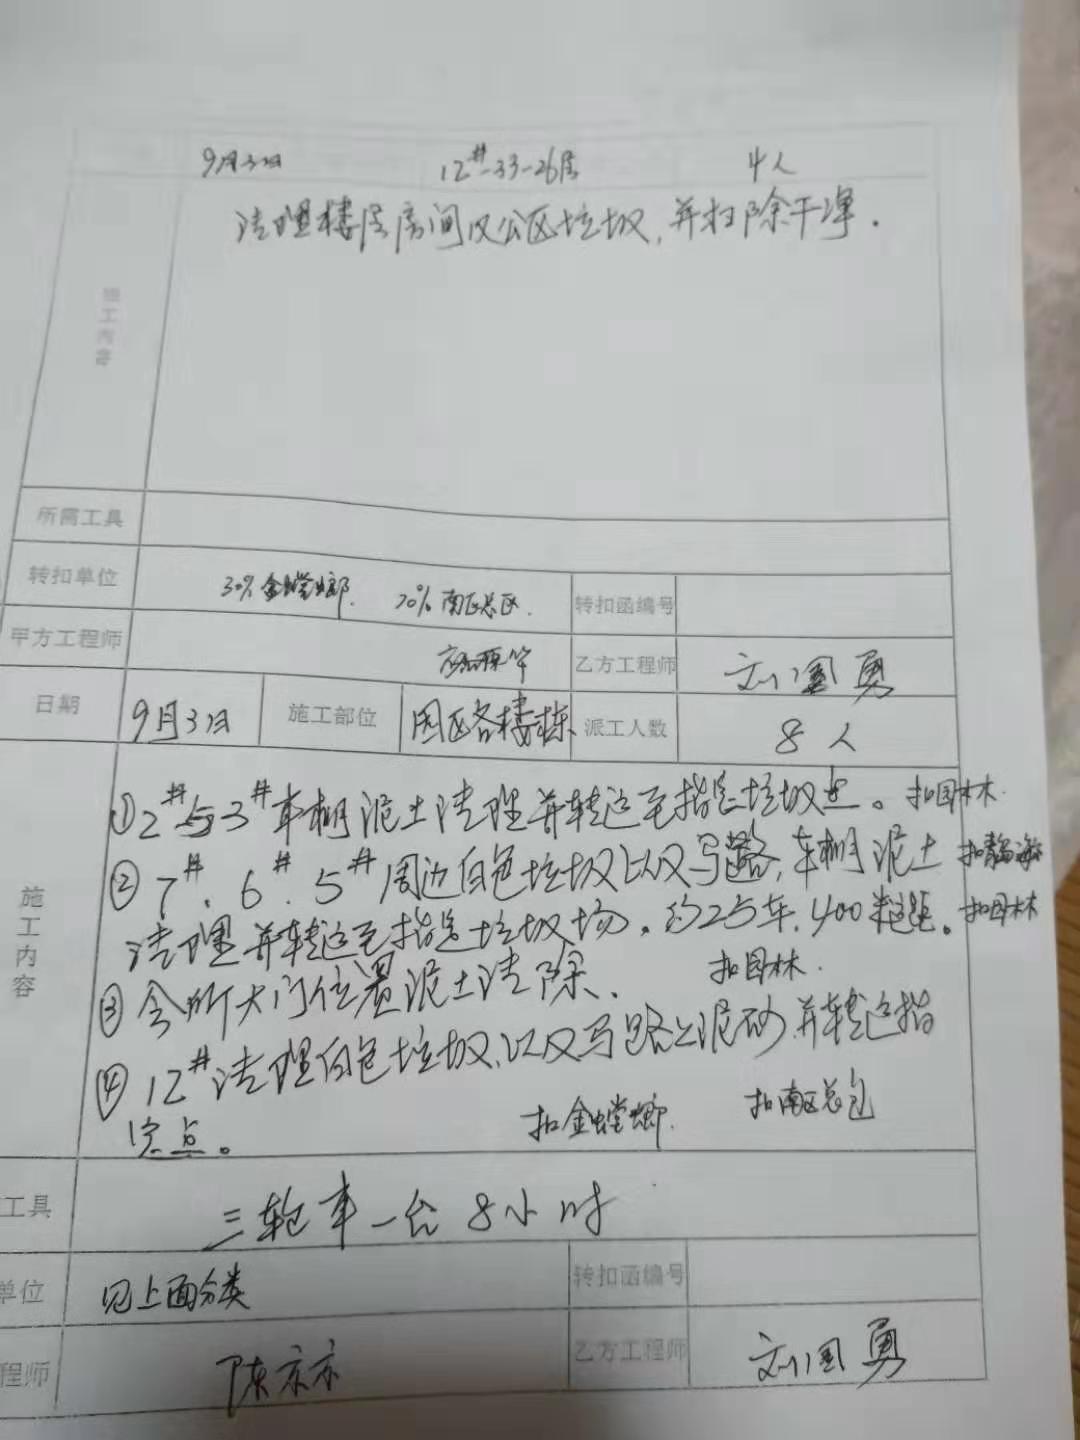 9月3日 12#-33-26层 4人
清理楼层房间及公区垃圾,并扫除干净.
施工内容
所需工具
转扣单位 30%金螳螂. 70%南区总区. 转扣函编号
甲方工程师 乙方工程师 刘国勇
日期 9月3日 施工部位 园区各楼栋 派工人数 8人
施工内容
①2#与3#车棚泥土清理并转运至指定垃圾点。扣园林.
②7#.6#.5#周边白色垃圾以及马路,车棚泥土
清理并转运至指定垃圾场,约25车.400米运距。扣园林
③会所大门位置泥土清除. 扣园林.
④12#清理白色垃圾,以及马路上泥砂并转运指
定点。 扣金螳螂. 扣南区总包
工具 三轮车一台8小时
单位 见上面分类 转扣函编号
程师 陈京京 乙方工程师 刘国勇